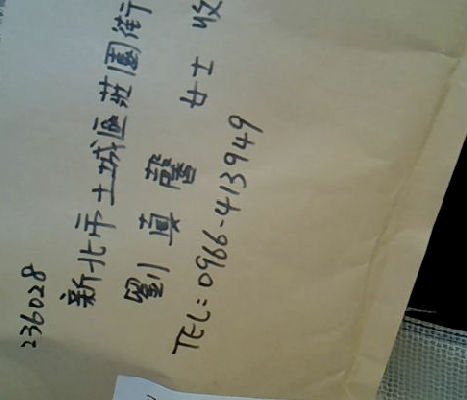 236028
新北市土城區莊園街
劉真馨 女士 收
TEL:0966-413949